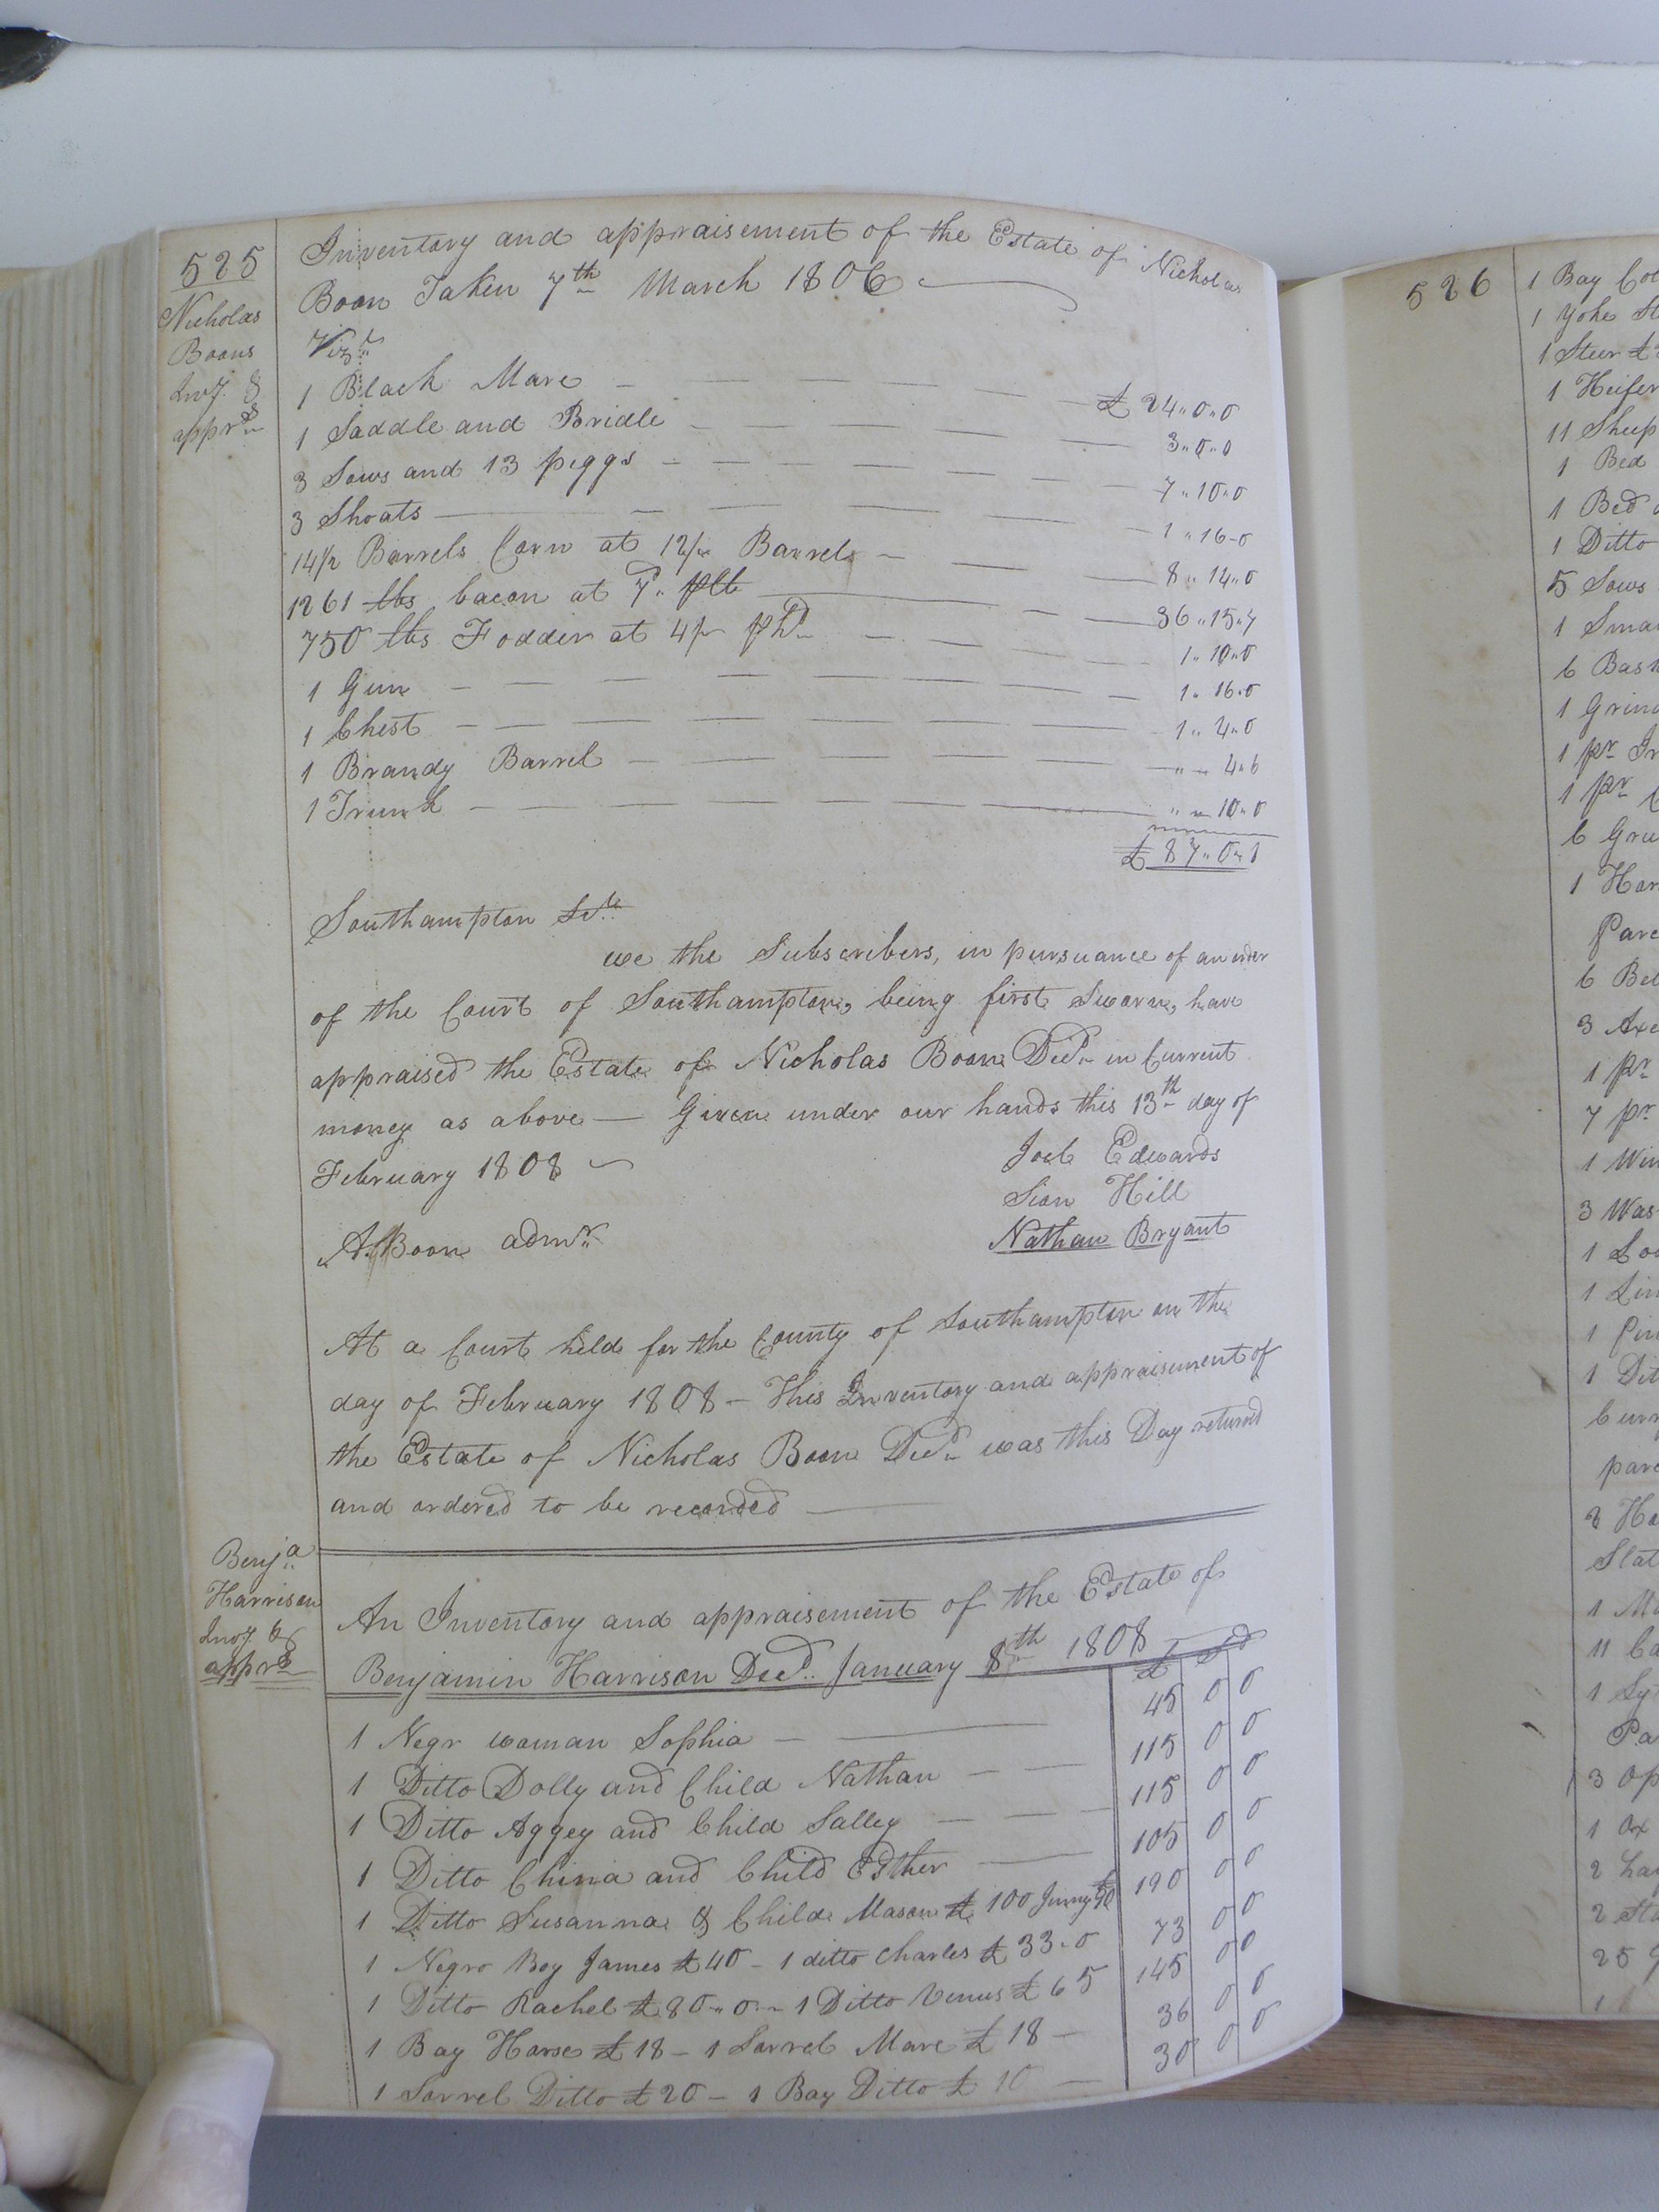 525
Nicholas
Boons
Invy. &
apprt
Inventory and appraisement of the Estate of Nicholas
Boon Taken 7th March 1806
Vizt
1 Black Mare — £ 24„0„0
1 Saddle and Bridle — 3„0„0
3 Sows and 13 piggs — 7„10„0
3 Shoats — 1„16-0
14½ Barrels Corn at 12/ Barrels — 8„14„0
1261 lbs bacon at 7d. plb — 36„15„7
750 lbs Fodder at 4/ phd — 1„10„0
1 Gun — 1„16„0
1 Chest — 1„4„0
1 Brandy Barrel — „ „ 4„6
1 Trunk — „ „ 10„0
£ 87„0„1
Southampton Sct
we the Subscribers, in pursuance of an order
of the Court of Southampton, being first Sworn, have
appraised the Estate of Nicholas Boon Decd in Current
money as above — Given under our hands this 13th day of
February 1808
Joel Edwards
Sion Hill
A. Boon admr
Nathan Bryant
At a Court held for the County of Southampton on the
day of February 1808 — This Inventory and appraisement of
the Estate of Nicholas Boon Decd was this Day returned
and ordered to be recorded —
Benja
Harrison
Invy. &
apprt
An Inventory and appraisement of the Estate of
Benjamin Harrison Decd. January 8th 1808 £ S d
1 Negr woman Sophia — 45 0 0
1 Ditto Dolly and Child Nathan — 115 0 0
1 Ditto Aggey and Child Salley — 115 0 0
1 Ditto China and Child Esther — 105 0 0
1 Ditto Susanna & Child Mason £ 100 Jinny £90 190 0 0
1 Negro Boy James £40 - 1 ditto Charles £ 33„0 73 0 0
1 Ditto Rachel £80„0„ - 1 Ditto Venus £ 65 145 0 0
1 Bay Horse £18 - 1 Sorrel Mare £ 18 - 36 0 0
1 Sorrel Ditto £20 - 1 Bay Ditto £ 10 — 30 0 0
526
1 Bay Col
1 Yoke St
1 Steer £
1 Heifer
11 Sheep
1 Bed
1 Bed
1 Ditto
5 Sows
1 Smal
6 Bask
1 Grind
1 pr Ir
1 pr
6 Gru
1 Har
Parc
6 Bel
3 Axe
1 pr
7 pr
1 Win
3 Was
1 Loo
1 Lin
1 Pin
1 Dit
Curr
parc
2 Ho
Slat
1 Ma
11 Ca
1 Sy
Pa
3 Op
1 Ox
2 Lay
2 Sta
25 G
1